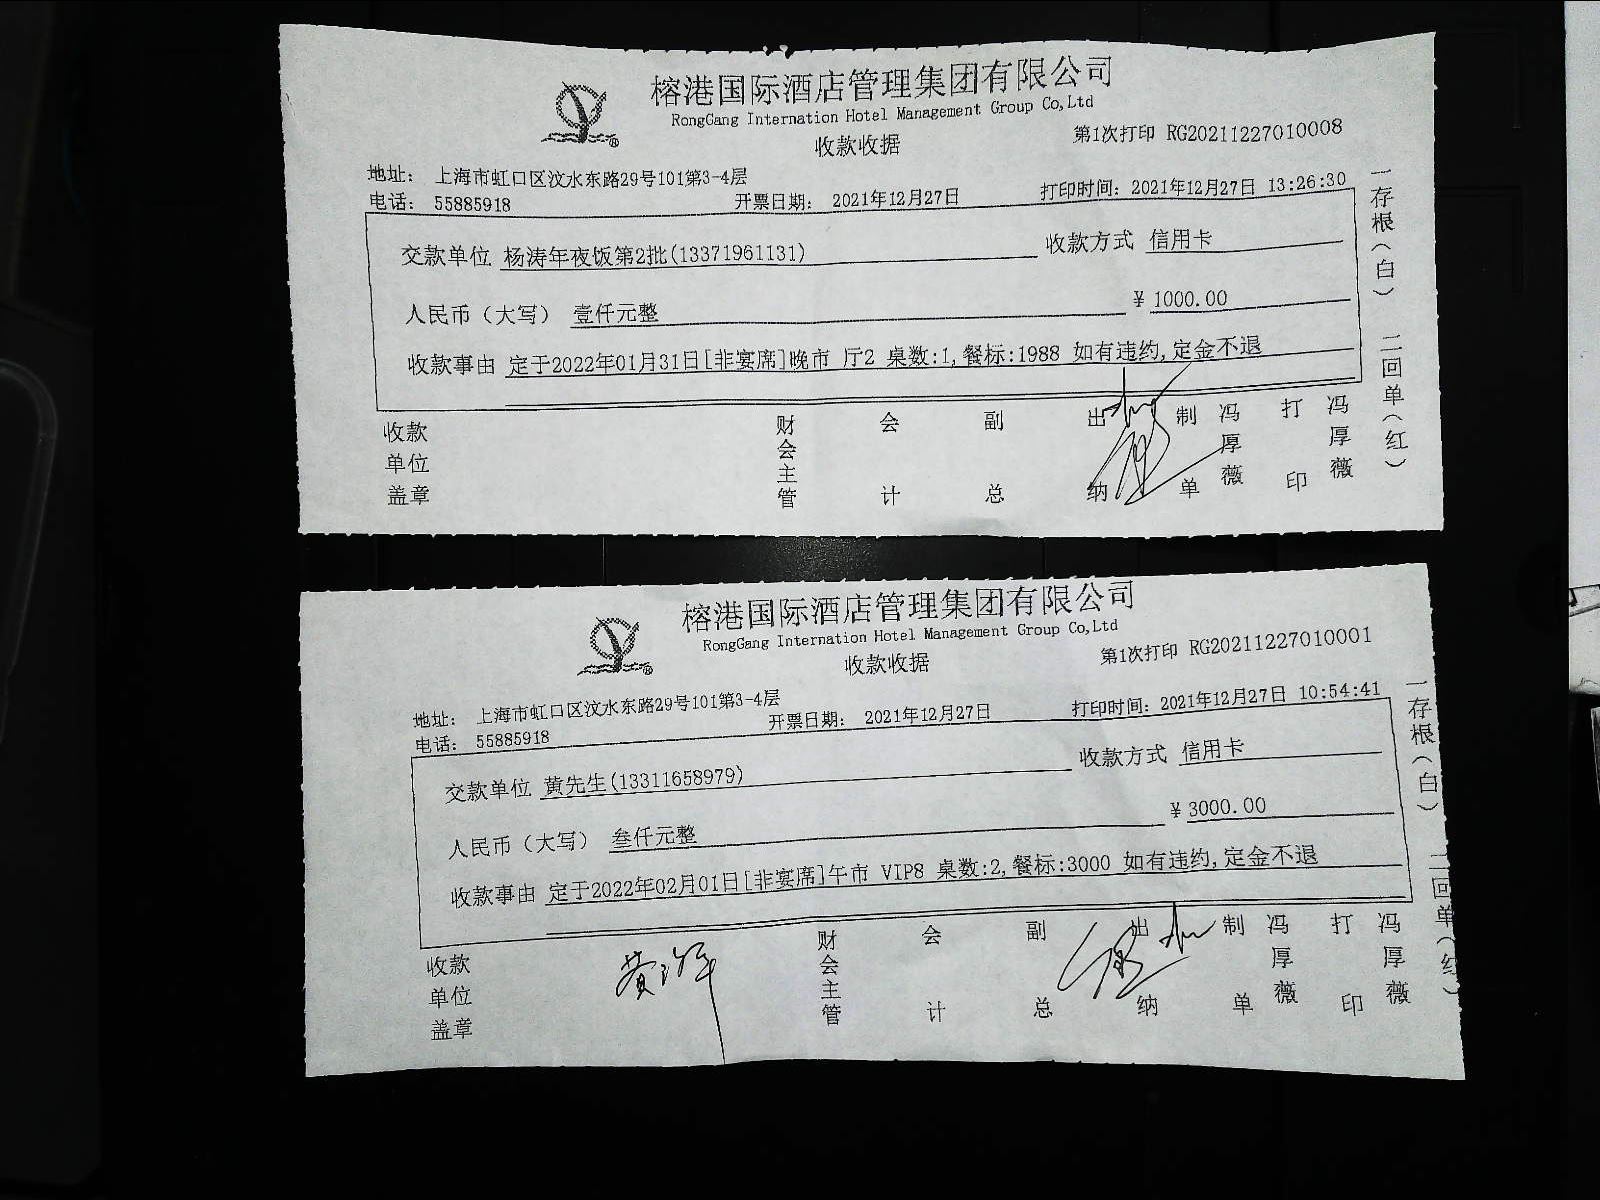 榕港国际酒店管理集团有限公司
RongGang Internation Hotel Management Group Co,Ltd
收款收据
第1次打印 RG20211227010008
地址： 上海市虹口区汶水东路29号101第3-4层
电话： 55885918 开票日期： 2021年12月27日 打印时间：2021年12月27日 13:26:30
交款单位 杨涛年夜饭第2批(13371961131) 收款方式 信用卡
人民币（大写） 壹仟元整 ¥ 1000.00
收款事由 定于2022年01月31日[非宴席]晚市 厅2 桌数:1,餐标:1988 如有违约,定金不退
收款单位盖章 财会主管 会计 副总 出纳 制单 冯厚薇 打印 冯厚薇
一存根（白） 二回单（红）
榕港国际酒店管理集团有限公司
RongGang Internation Hotel Management Group Co,Ltd
收款收据
第1次打印 RG20211227010001
地址： 上海市虹口区汶水东路29号101第3-4层
电话： 55885918 开票日期： 2021年12月27日 打印时间：2021年12月27日 10:54:41
交款单位 黄先生(13311658979) 收款方式 信用卡
人民币（大写） 叁仟元整 ¥ 3000.00
收款事由 定于2022年02月01日[非宴席]午市 VIP8 桌数:2,餐标:3000 如有违约,定金不退
收款单位盖章 财会主管 会计 副总 出纳 制单 冯厚薇 打印 冯厚薇
一存根（白） 二回单（红）